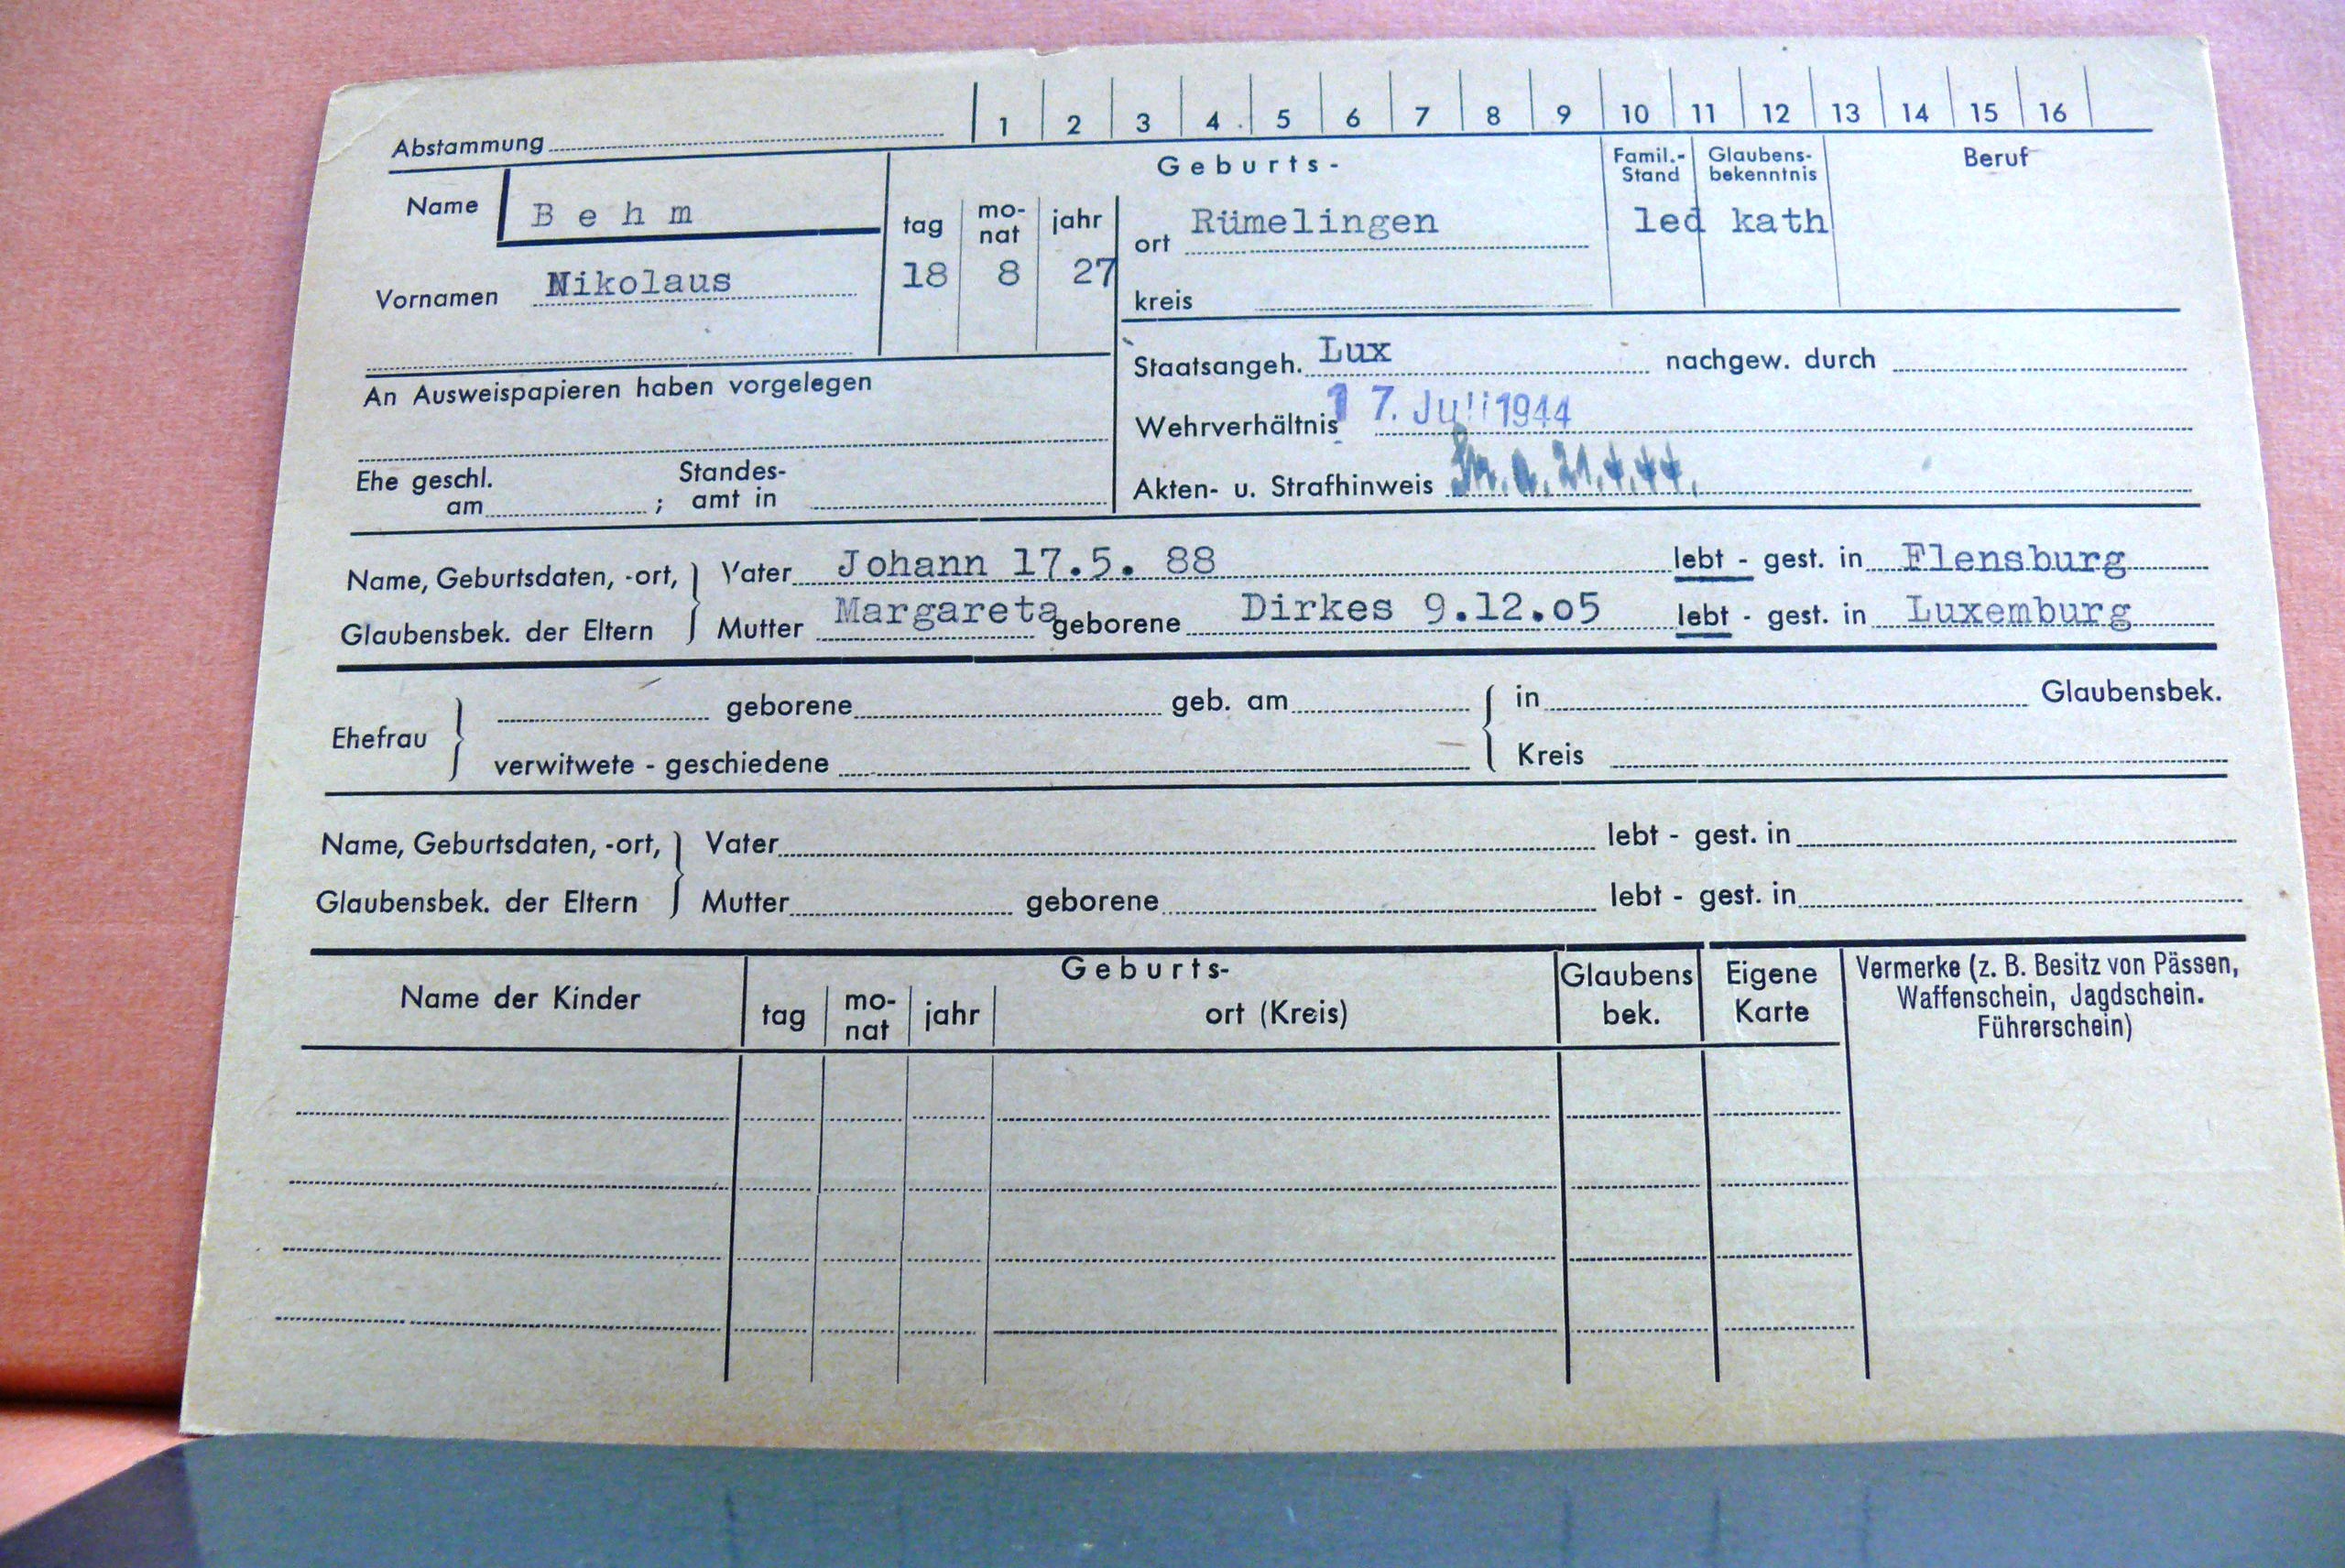 Abstammung 1 2 3 4 5 6 7 8 9 10 11 12 13 14 15 16
Name Behm
Vornamen Nikolaus
Geburts-
tag mo-nat jahr
18 8 27
ort Rümelingen
kreis
Famil.-Stand
led
Glaubens-bekenntnis
kath
Beruf
An Ausweispapieren haben vorgelegen
Ehe geschl. am ; Standes-amt in
Staatsangeh. Lux nachgew. durch
Wehrverhältnis 17. Juli 1944
Akten- u. Strafhinweis 21.4.44.
Name, Geburtsdaten, -ort, Vater Johann 17.5. 88 lebt - gest. in Flensburg
Glaubensbek. der Eltern Mutter Margareta geborene Dirkes 9.12.o5 lebt - gest. in Luxemburg
Ehefrau
geborene geb. am in Glaubensbek.
verwitwete - geschiedene Kreis
Name, Geburtsdaten, -ort, Vater lebt - gest. in
Glaubensbek. der Eltern Mutter geborene lebt - gest. in
Name der Kinder
Geburts-
tag mo-nat jahr ort (Kreis)
Glaubens bek.
Eigene Karte
Vermerke (z. B. Besitz von Pässen,
Waffenschein, Jagdschein.
Führerschein)